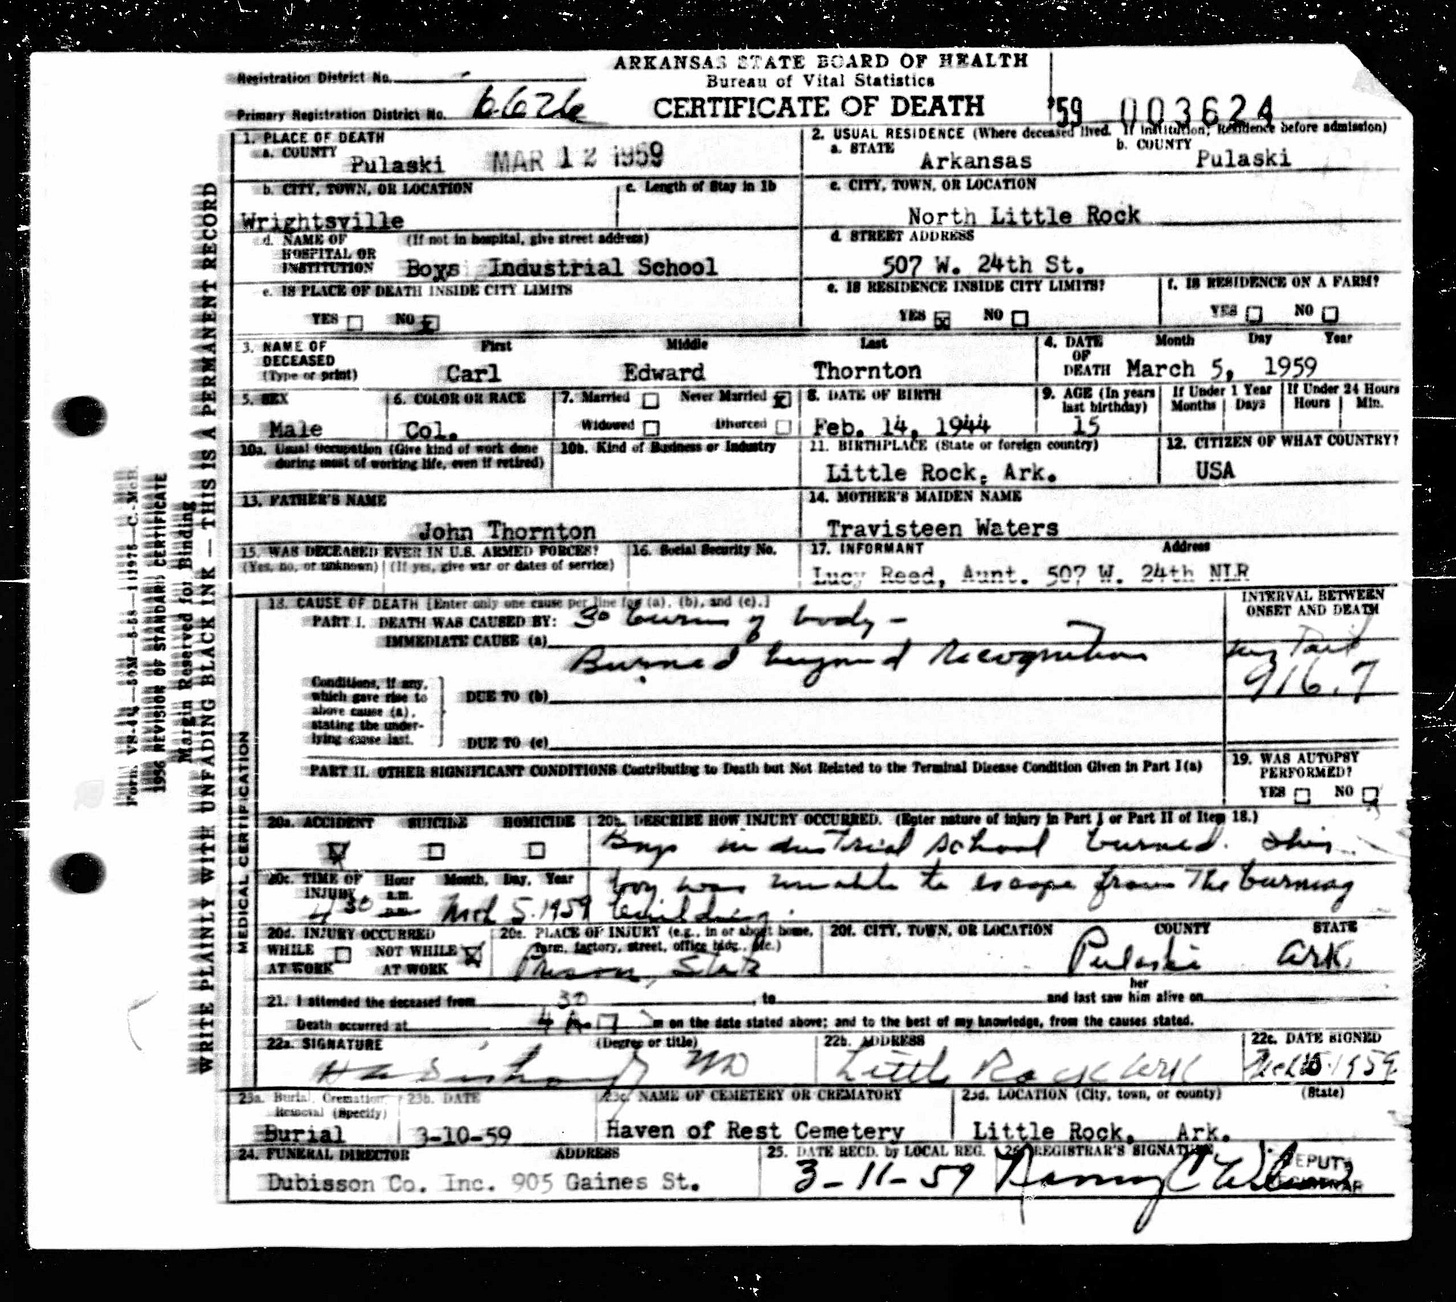 ARKANSAS STATE BOARD OF HEALTH
Bureau of Vital Statistics
CERTIFICATE OF DEATH
Registration District No.
Primary Registration District No. 6626
'59 003624
1. PLACE OF DEATH
a. COUNTY Pulaski MAR 12 1959
2. USUAL RESIDENCE (Where deceased lived. If institution; Residence before admission)
a. STATE Arkansas b. COUNTY Pulaski
b. CITY, TOWN, OR LOCATION Wrightsville
c. Length of Stay in 1b
c. CITY, TOWN, OR LOCATION
North Little Rock
d. NAME OF HOSPITAL OR INSTITUTION (If not in hospital, give street address)
Boys Industrial School
d. STREET ADDRESS
507 W. 24th St.
e. IS PLACE OF DEATH INSIDE CITY LIMITS?
YES NO
e. IS RESIDENCE INSIDE CITY LIMITS?
YES NO
f. IS RESIDENCE ON A FARM?
YES NO
3. NAME OF DECEASED (Type or print)
First Middle Last
Carl Edward Thornton
4. DATE OF DEATH Month Day Year
March 5, 1959
5. SEX Male
6. COLOR OR RACE Col.
7. Married Never Married
Widowed Divorced
8. DATE OF BIRTH
Feb. 14, 1944
9. AGE (In years last birthday) 15
If Under 1 Year Months Days
If Under 24 Hours Hours Min.
10a. Usual Occupation (Give kind of work done during most of working life, even if retired)
10b. Kind of Business or Industry
11. BIRTHPLACE (State or foreign country)
Little Rock, Ark.
12. CITIZEN OF WHAT COUNTRY?
USA
13. FATHER'S NAME
John Thornton
14. MOTHER'S MAIDEN NAME
Travisteen Waters
15. WAS DECEASED EVER IN U.S. ARMED FORCES?
(Yes, no, or unknown) (If yes, give war or dates of service)
16. Social Security No.
17. INFORMANT Address
Lucy Reed, Aunt. 507 W. 24th NLR
18. CAUSE OF DEATH [Enter only one cause per line for (a), (b), and (c).]
PART I. DEATH WAS CAUSED BY: 3o burns of body -
IMMEDIATE CAUSE (a)
Burned beyond recognition
INTERVAL BETWEEN ONSET AND DEATH
916.7
Conditions, if any, which gave rise to above cause (a), stating the underlying cause last.
DUE TO (b)
DUE TO (c)
PART II. OTHER SIGNIFICANT CONDITIONS Contributing to Death but Not Related to the Terminal Disease Condition Given in Part I(a)
19. WAS AUTOPSY PERFORMED?
YES NO
20a. ACCIDENT SUICIDE HOMICIDE
20b. DESCRIBE HOW INJURY OCCURRED. (Enter nature of injury in Part I or Part II of Item 18.)
Boys industrial school burned. This
boy was unable to escape from The burning
building.
20c. TIME OF INJURY Hour a.m. p.m. Month, Day, Year
4 30 Mch 5. 1959
20d. INJURY OCCURRED
WHILE AT WORK NOT WHILE AT WORK
20e. PLACE OF INJURY (e.g., in or about home, farm, factory, street, office bldg., etc.)
Prison, State
20f. CITY, TOWN, OR LOCATION COUNTY STATE
Pulaski Ark.
21. I attended the deceased from , to and last saw her him alive on
Death occurred at 4 30 A m on the date stated above; and to the best of my knowledge, from the causes stated.
22a. SIGNATURE (Degree or title)
MD
22b. ADDRESS
Little Rock Ark
22c. DATE SIGNED
1959
23a. Burial, Cremation Removal (Specify)
Burial
23b. DATE
3-10-59
23c. NAME OF CEMETERY OR CREMATORY
Haven of Rest Cemetery
23d. LOCATION (City, town, or county) (State)
Little Rock, Ark.
24. FUNERAL DIRECTOR ADDRESS
Dubisson Co. Inc. 905 Gaines St.
25. DATE RECD. by LOCAL REG.
3-11-59
26. REGISTRAR'S SIGNATURE
DEPUTY REGISTRAR
MEDICAL CERTIFICATION
WRITE PLAINLY WITH UNFADING BLACK INK — THIS IS A PERMANENT RECORD
Margin Reserved for Binding
1956 REVISION OF STANDARD CERTIFICATE